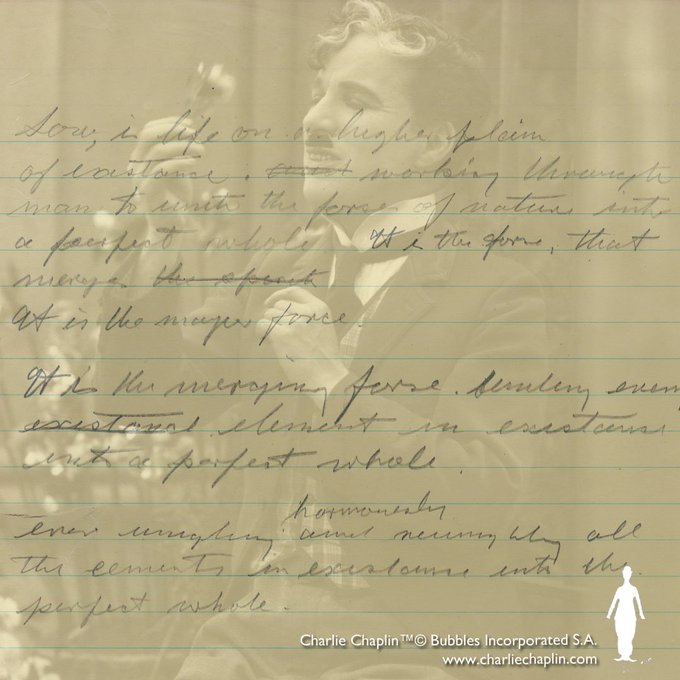 Love, is life on a higher plain
of existance. working through
man to unite the forse of nature into
a perfect whole It is the forse, that
merges the spirits
It is the major force.
It is the merging forse. every
existance element in existance
into a perfect whole.
harmonesly
ever and all
the elements in existance into the
perfect whole.
Charlie Chaplin™© Bubbles Incorporated S.A.
www.charliechaplin.com